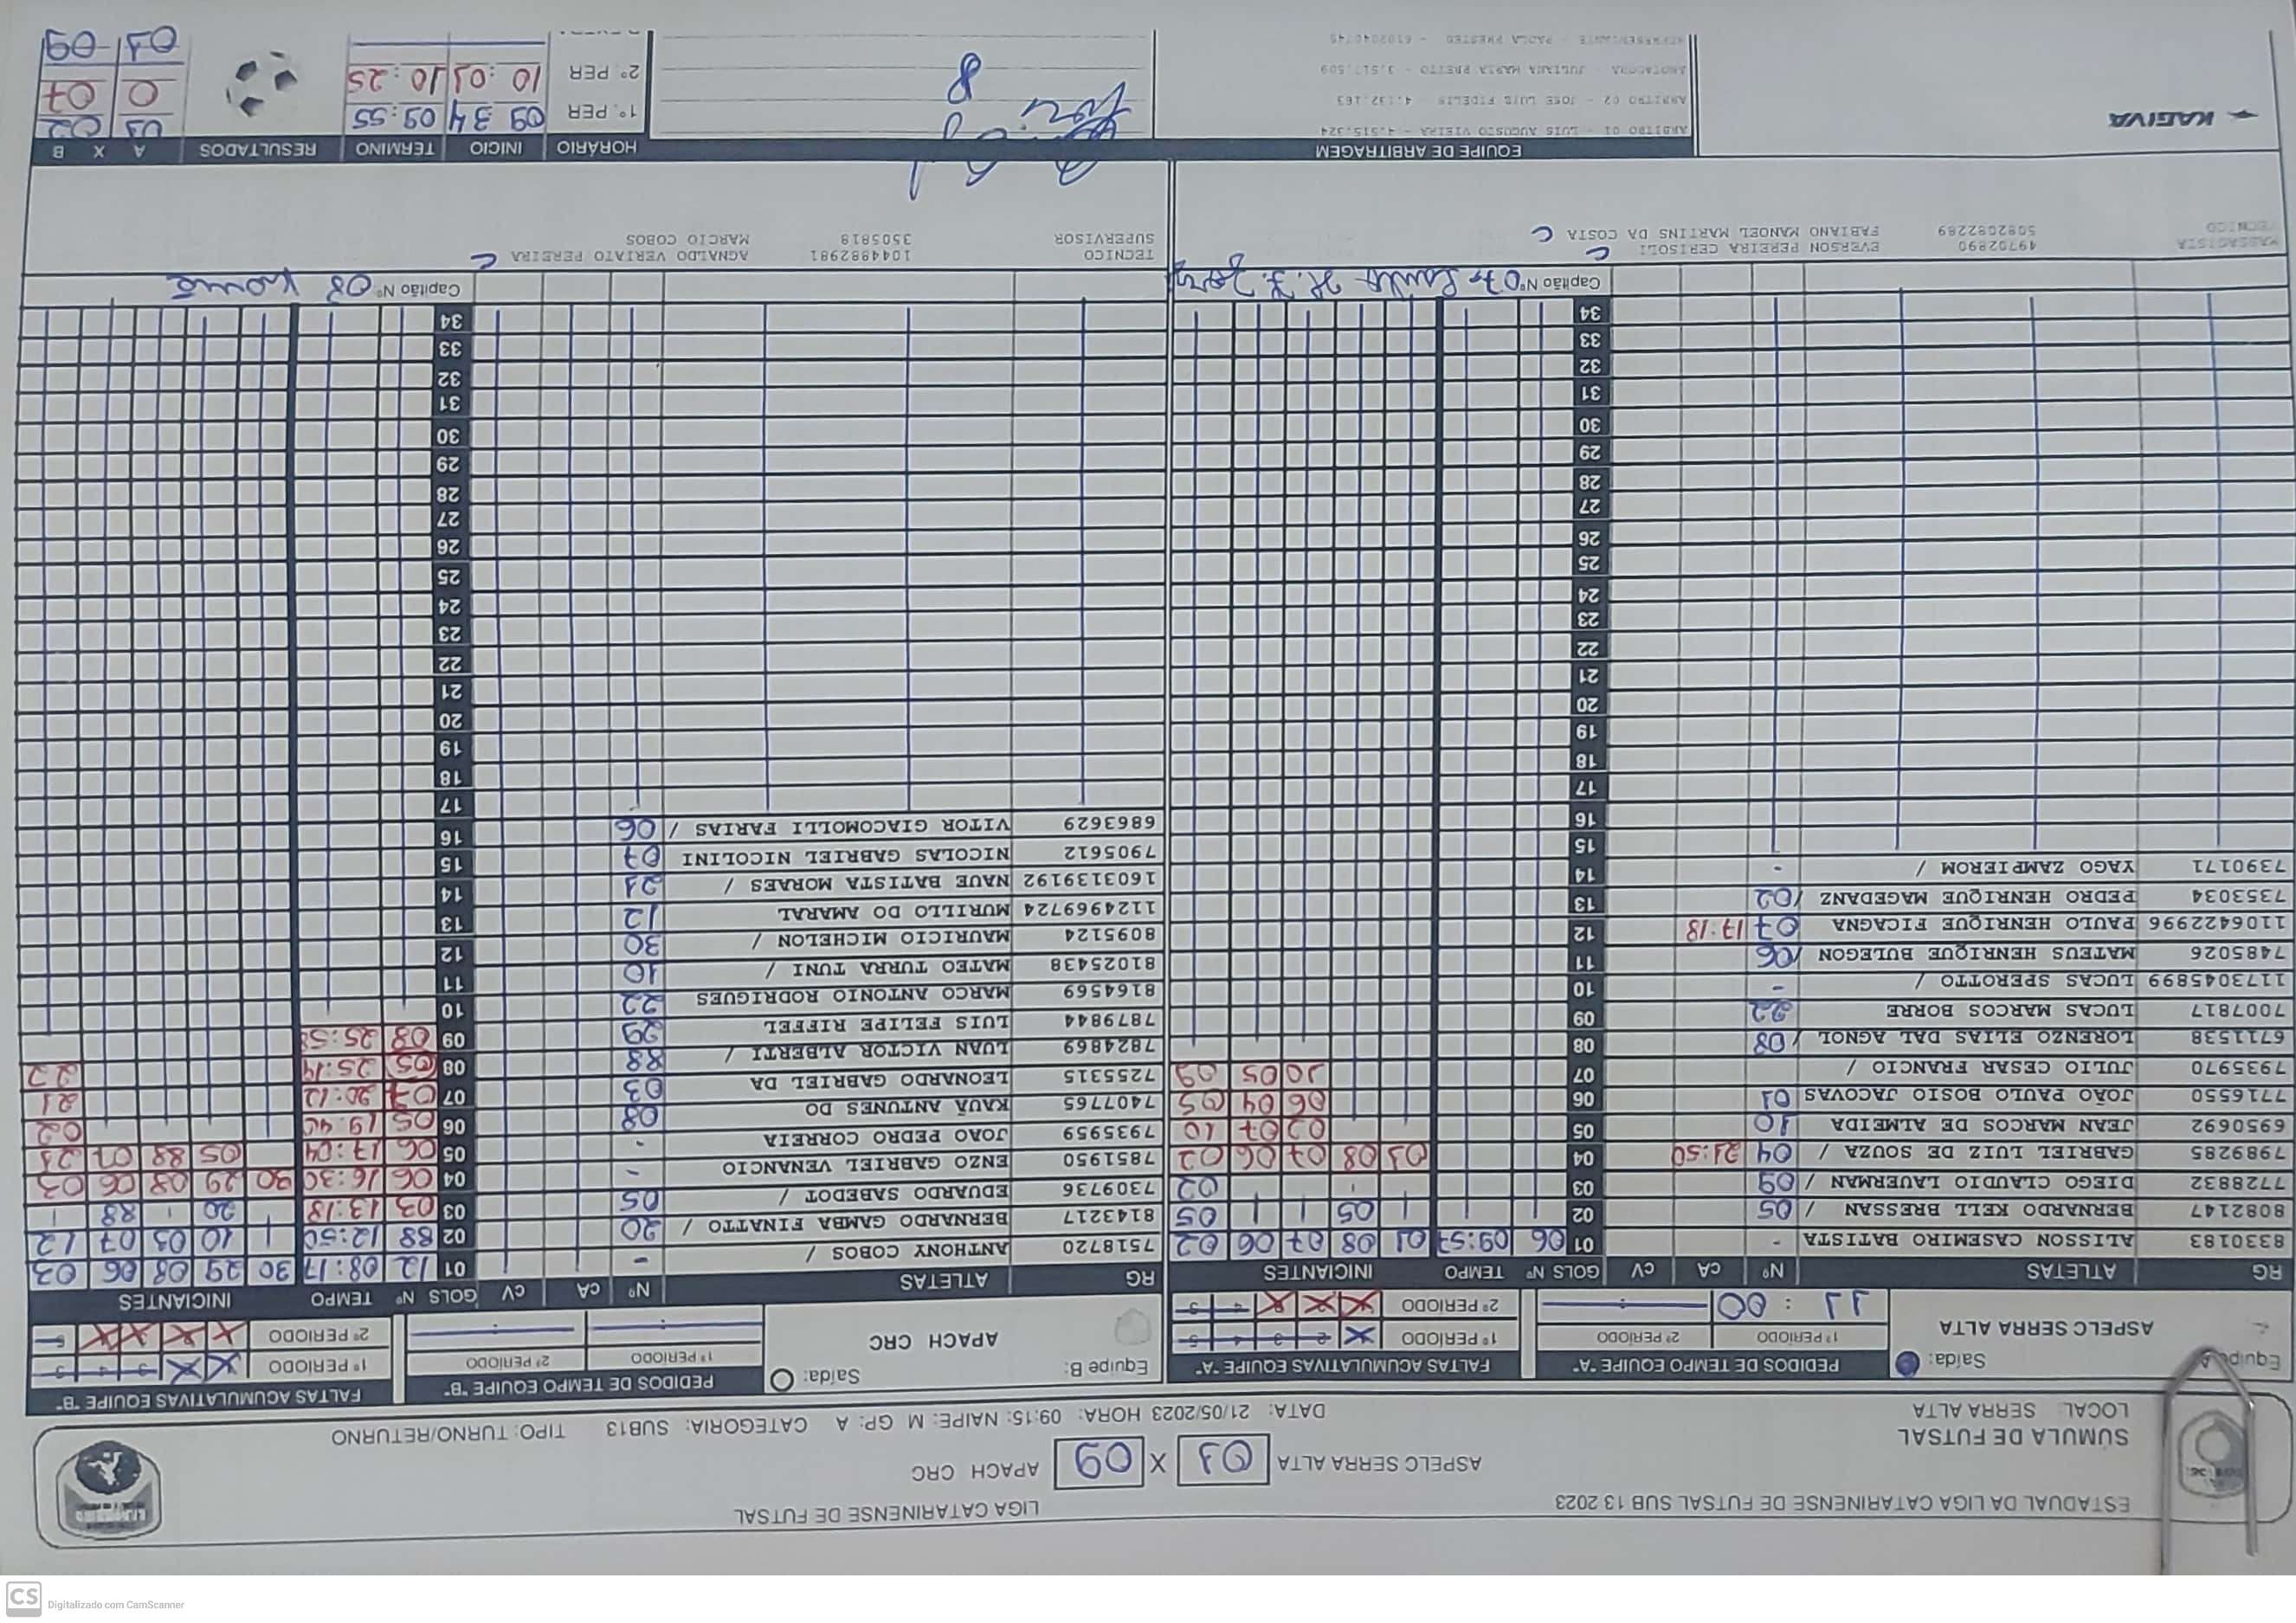 ESTADUAL DA LIGA CATARINENSE DE FUTSAL SUB 13 2023
LIGA CATARINENSE DE FUTSAL
SÚMULA DE FUTSAL
ASPELC SERRA ALTA 01 X 09 APACH CRC
LOCAL SERRA ALTA
DATA: 21/05/2023 HORA: 09:15: NAIPE: M GP: A CATEGORIA: SUB13 TIPO: TURNO/RETURNO
Equipe A
ASPELC SERRA ALTA
Saída:
PEDIDOS DE TEMPO EQUIPE "A"
1º PERIODO 2º PERIODO
11 : 00
FALTAS ACUMULATIVAS EQUIPE "A"
1º PERIODO X 2 3 4 5
2º PERIODO X X X 4 5
RG ATLETAS Nº CA CV GOLS Nº TEMPO INICIANTES
8330183 ALISSON CASEMIRO BATISTA - 01 06 09:57 01 08 07 06 02
8082147 BERNARDO KELL BRESSAN / 05 02 05 05
7728832 DIEGO CLAUDIO LAUERMAN / 09 03 02
7989285 GABRIEL LUIZ DE SOUZA / 04 21:50 04 01 08 07 06 02
6950692 JEAN MARCOS DE ALMEIDA 10 05 02 07 10
7716550 JOÃO PAULO BOSIO JACOVAS 01 06 06 04 05
7935970 JULIO CESAR FRANCIO / 07 10 05 09
6711538 LORENZO ELIAS DAL AGNOL / 08 08
7007817 LUCAS MARCOS BORRE 22 09
1173045899 LUCAS SPEROTTO / - 10
7485026 MATEUS HENRIQUE BULEGON / 06 11
1106422996 PAULO HENRIQUE FICAGNA 07 17:18 12
7353034 PEDRO HENRIQUE MAGEDANZ / 02 13
7390171 YAGO ZAMPIEROM / - 14
15
16
17
18
19
20
21
22
23
24
25
26
27
28
29
30
31
32
33
34
Capitão Nº 07
MASSAGISTA 49702890 EVERSON PEREIRA CERISOLI C
TECNICO 5082082289 FABIANO MANOEL MARTINS DA COSTA C
Equipe B:
APACH CRC
Saída:
PEDIDOS DE TEMPO EQUIPE "B"
1º PERIODO 2º PERIODO
FALTAS ACUMULATIVAS EQUIPE "B"
1º PERIODO X X 3 4 5
2º PERIODO X X X X 5
RG ATLETAS Nº CA CV GOLS Nº TEMPO INICIANTES
7518720 ANTHONY COBOS / - 01 12 08:17 30 29 08 06 03
8143217 BERNARDO GAMBA FINATTO / 20 02 88 12:50 10 05 07 12
7309736 EDUARDO SABEDOT / 05 03 03 13:18 20 88
7851950 ENZO GABRIEL VENANCIO - 04 06 16:30 30 29 08 06 03
7935959 JOAO PEDRO CORREIA - 05 06 17:04 05 88 07 21
7407765 KAUÃ ANTUNES DO 08 06 05 19:40 02
7255315 LEONARDO GABRIEL DA 03 07 07 20:12 21
7824869 LUAN VICTOR ALBERTI / 88 08 05 25:14 22
7879844 LUIS FELIPE RIFFEL 29 09 08 25:58
8164569 MARCO ANTONIO RODRIGUES 22 10
81025438 MATEO TURRA TUNI / 10 11
8095124 MAURICIO MICHELON / 30 12
1124969724 MURILLO DO AMARAL 12 13
1603139192 NAUE BATISTA MORAES / 21 14
7905612 NICOLAS GABRIEL NICOLINI 07 15
6863629 VITOR GIACOMOLLI FARIAS / 06 16
17
18
19
20
21
22
23
24
25
26
27
28
29
30
31
32
33
34
Capitão Nº 08
TECNICO 1044882981 AGNALDO VERIATO PEREIRA C
SUPERVISOR 3505818 MARCIO COBOS
KAGIVA
EQUIPE DE ARBITRAGEM
ARBITRO 01 - LUIS AUGUSTO VIEIRA - 4.515.324
ARBITRO 02 - JOSE LUIS FIDELIS - 4.132.163
ANOTADORA - JULIANA MARIA PRETTO - 3.517.509
REPRESENTANTE - PAOLA PRESTES - 6102040745
HORÁRIO INICIO TERMINO RESULTADOS A X B
1º. PER 09 34 09:55 01 02
2º. PER 10:01 10:25 0 07
01 09
CS Digitalizado com CamScanner